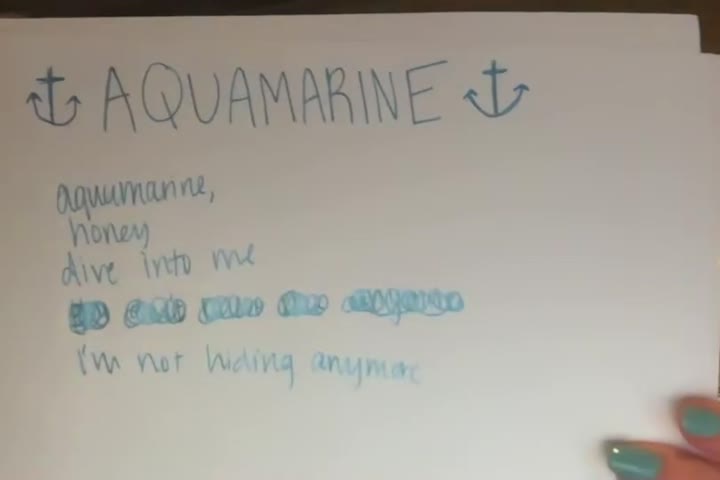 AQUAMARINE
aquamarine,
honey
dive into me
I'm not hiding anymore